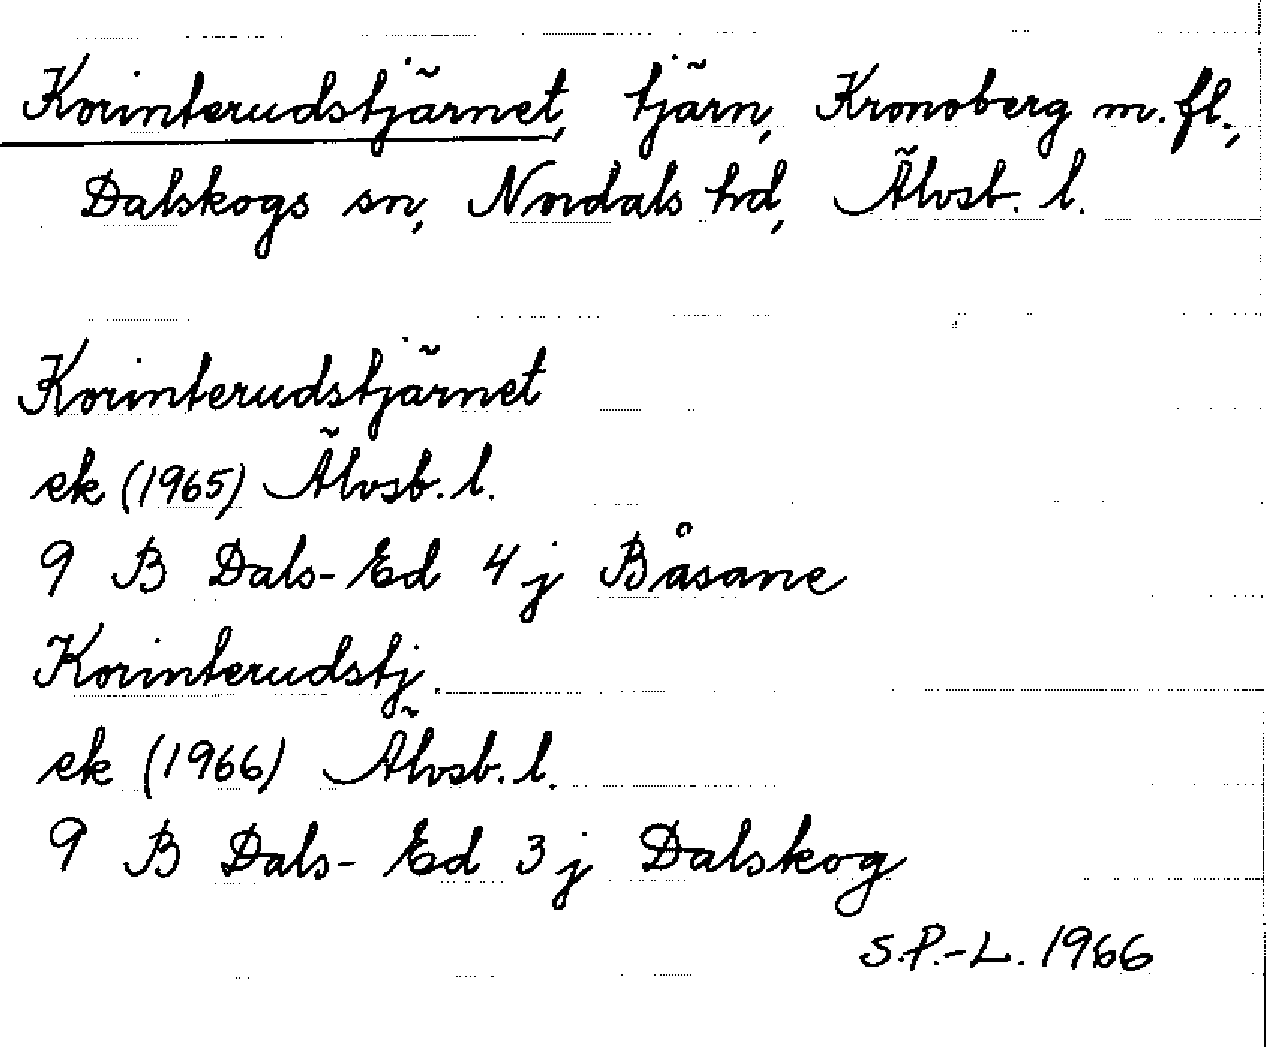 Korinterudstjärnet, tjärn, Kronoberg m. fl.,
Dalskogs sn, Nordals hd, Älvsb. l.
Korinterudstjärnet
ek (1965) Älvsb. l.
9 B Dals-Ed 4 j Båsane
Korinterudstj.
ek (1966) Älvsb. l.
9 B Dals-Ed 3 j Dalskog
S.P.-L. 1966